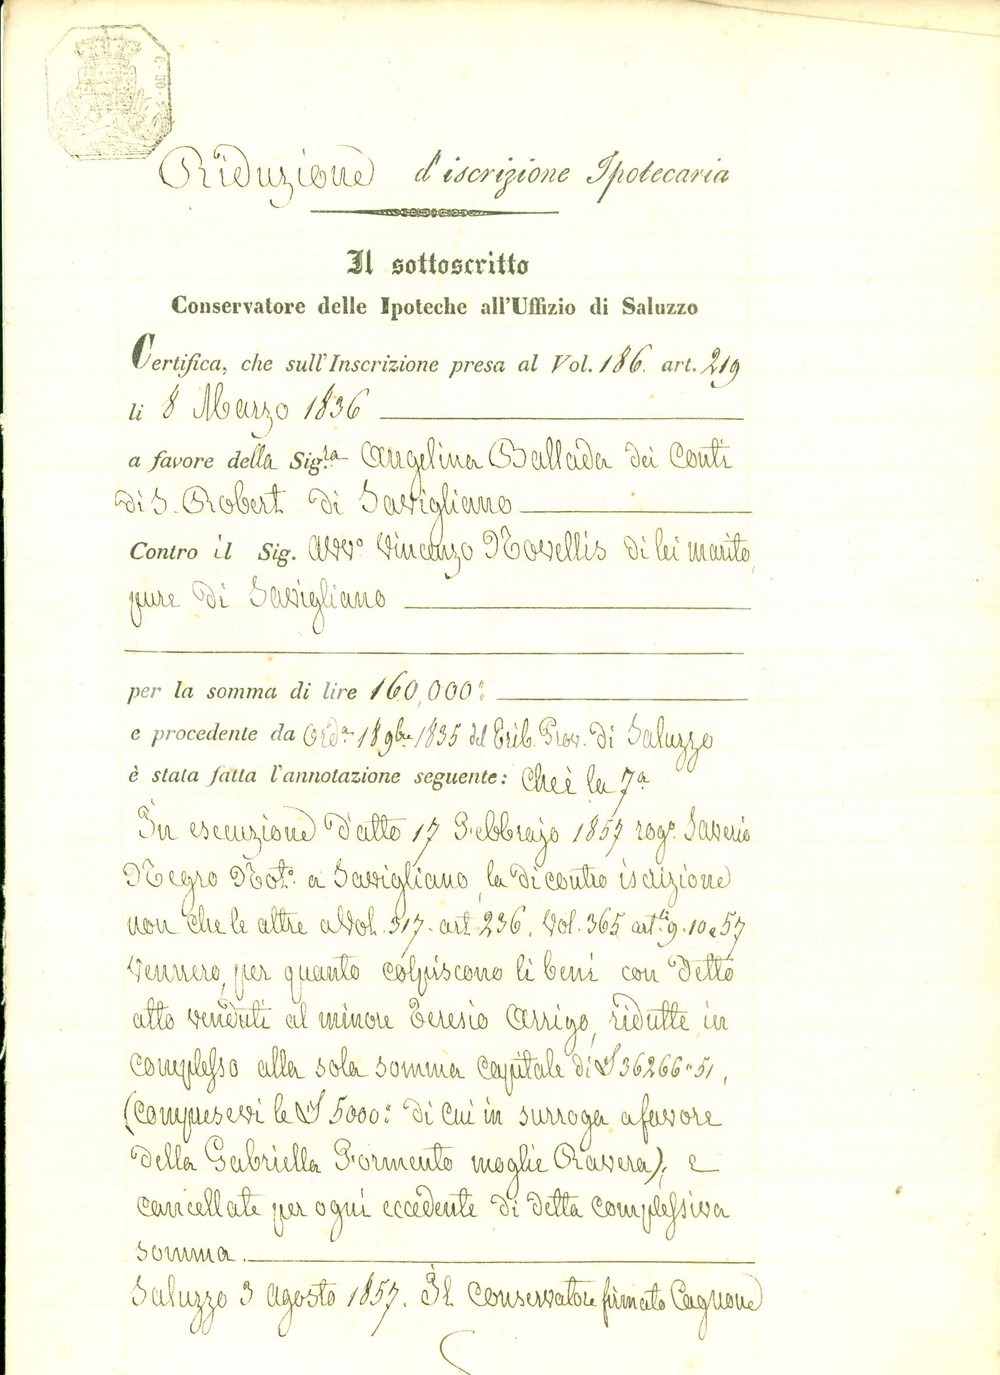 C. 50
Riduzione d'iscrizione Ipotecaria
Il sottoscritto
Conservatore delle Ipoteche all'Uffizio di Saluzzo
Certifica, che sull'Inscrizione presa al Vol. 186. art. 219
li 8 Marzo 1836
a favore della Sig.ra Angelina Ballada dei Conti
di S. Robert di Savigliano
Contro il Sig. Avv.o Vincenzo Novellis di lei marito,
pure di Savigliano
per la somma di lire 160,000:
e procedente da Ord.a 18 9bre 1835 del Trib. Prov. di Saluzzo
è stata fatta l'annotazione seguente: che è la 7a
In esecuzione d'atto 17 Febbrajo 1857 rog.o Saverio
Negro Not.o a Savigliano, la dicontro iscrizione
non che le altre a Vol. 317. art. 236. Vol. 365 art.li 9. 10 e 57
vennero, per quanto colpiscono li beni con detto
atto venduti al minore Teresio Arrigo, ridutte in
complesso alla sola somma capitale di £ 36266" 51,
(compresevi le £ 5000: di cui in surroga a favore
della Gabriella Formento moglie Ravera); e
cancellate per ogni eccedente di detta complessiva
somma.
Saluzzo 3 agosto 1857. Il Conservatore firmato Cagnone